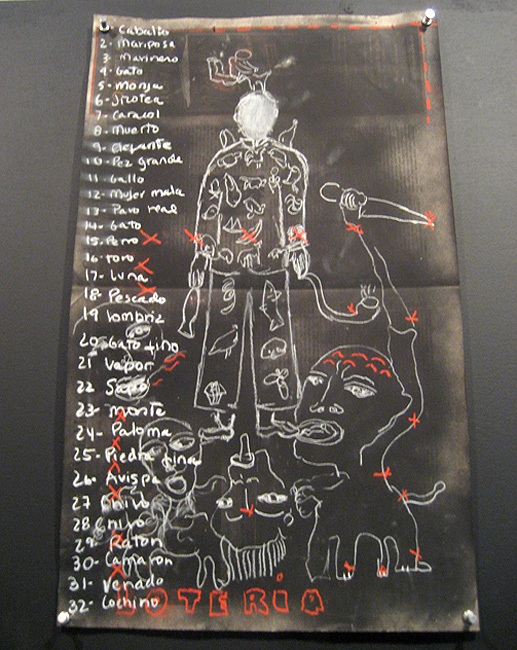 1- Caballo
2- Mariposa
3- Marinero
4- Gato
5- Monja
6- Jicotea
7- Caracol
8- Muerto
9- Elefante
10- Pez grande
11 Gallo
12- Mujer mala
13- Pavo real
14- Gato
15- Perro
16- toro
17- Luna
18- Pescado
19 lombriz
20- Gato fino
21 Vapor
22 Sapo
23- monte
24- Paloma
25- Piedra fina
26- Avispa
27 Chivo
28 Chivo
29- Raton
30- Camaron
31- Venado
32- Cochino
LOTERIA